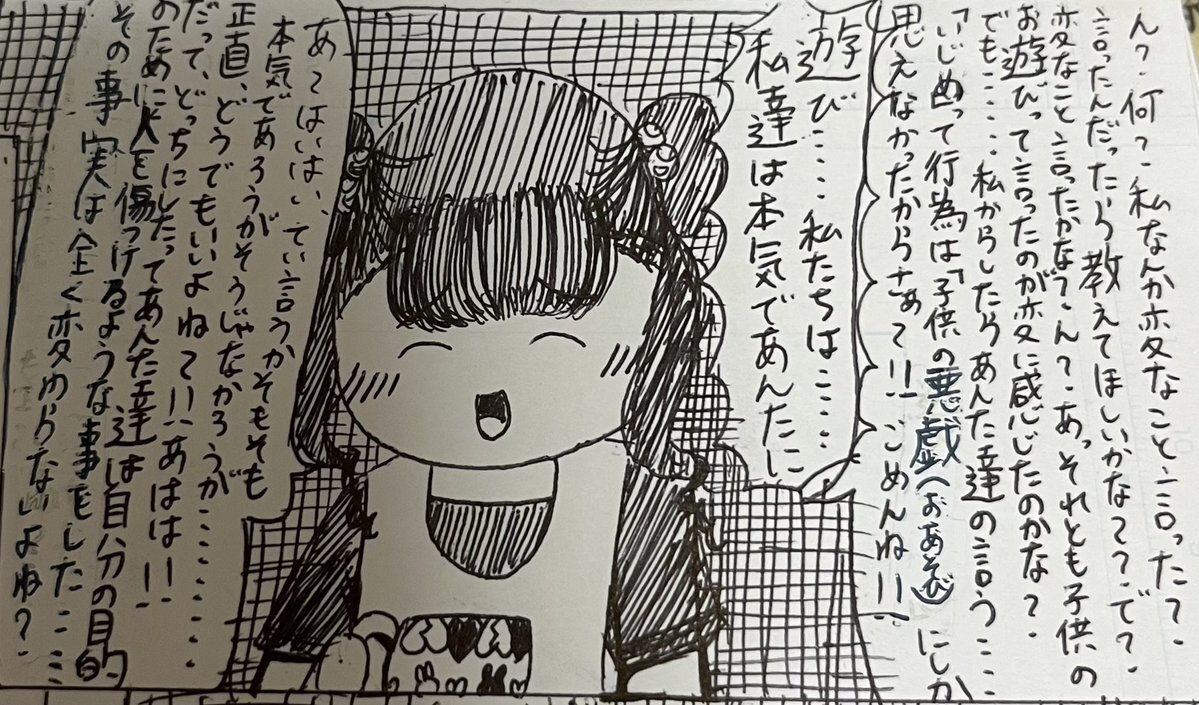 ん？何？私なんか変なこと言った？
言ったんだったら教えてほしいかなて？で？
変なこと言ったかな？ん？あっそれとも子供の
お遊びって言ったのが変に感じたのかな？
でも……私からしたらあんた達の言う……
「いじめって行為は「子供の悪戯(おあそび)にしか
思えなかったからさぁて!!ごめんね!!
遊び……私たちは……
私達は本気であんたに
あてはいはい、てい言うかそもそも
本気であろうがそうじゃなかろうが………
正直、どうでもいいよねて!!あはは!!
だって、どっちにしたってあんた達は自分の目的
のために人を傷つけるような事をした……
その事実は全く変わらないよね？